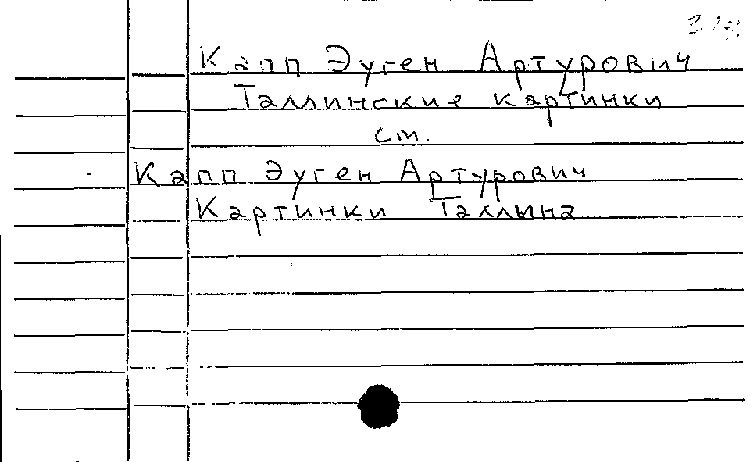 Капп Эуген Артурович
Таллинские картинки
см.
Капп Эуген Артурович
Картинки Таллына